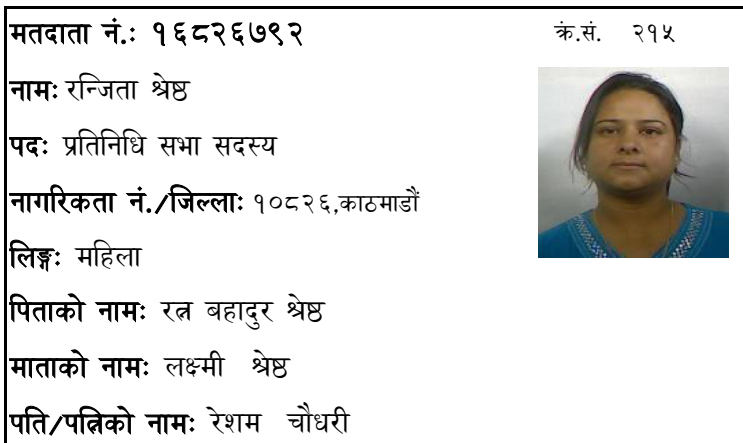 मतदाता नं.: १६८२६७९२ क्रं.सं. २१५
नामः रन्जिता श्रेष्ठ
पदः प्रतिनिधि सभा सदस्य
नागरिकता नं./जिल्लाः १०८२६,काठमाडौं
लिङ्गः महिला
पिताको नामः रत्न बहादुर श्रेष्ठ
माताको नामः लक्ष्मी श्रेष्ठ
पति/पत्निको नामः रेशम चौधरी